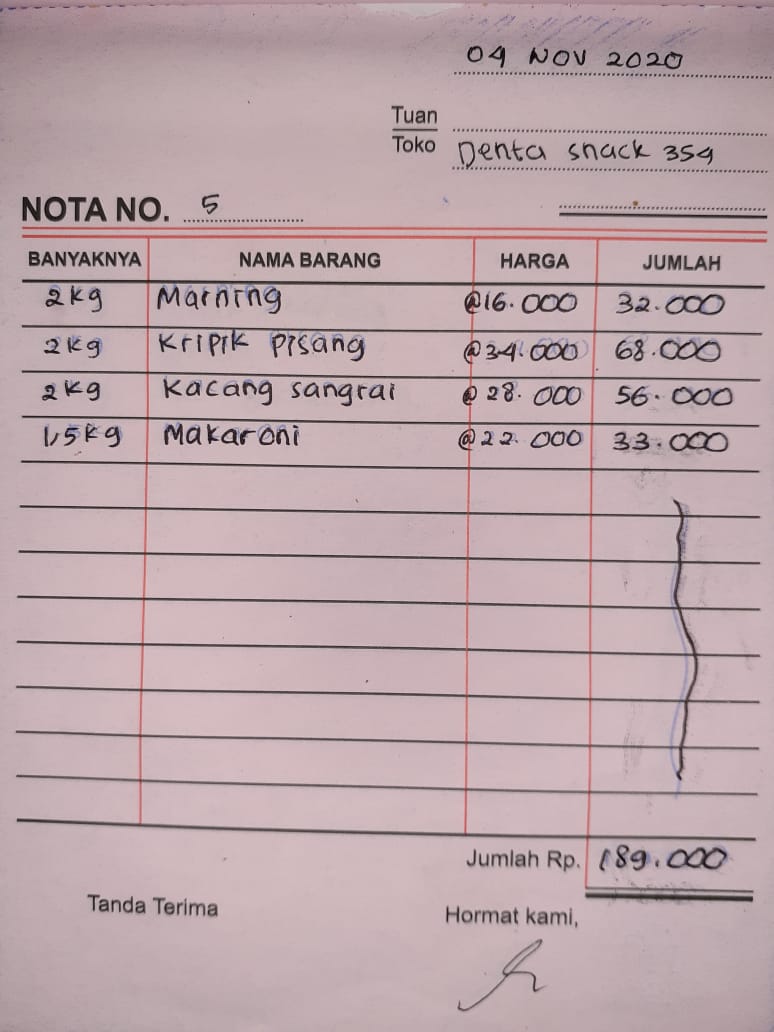 04 NOV 2020
Tuan
Toko Denta snack 354
NOTA NO. 5
BANYAKNYA NAMA BARANG HARGA JUMLAH
2kg Marning @16.000 32.000
2kg Kripik Pisang @34.000 68.000
2kg Kacang sangrai @ 28.000 56.000
1,5kg Makaroni @22.000 33.000
Jumlah Rp. 189.000
Tanda Terima Hormat kami,